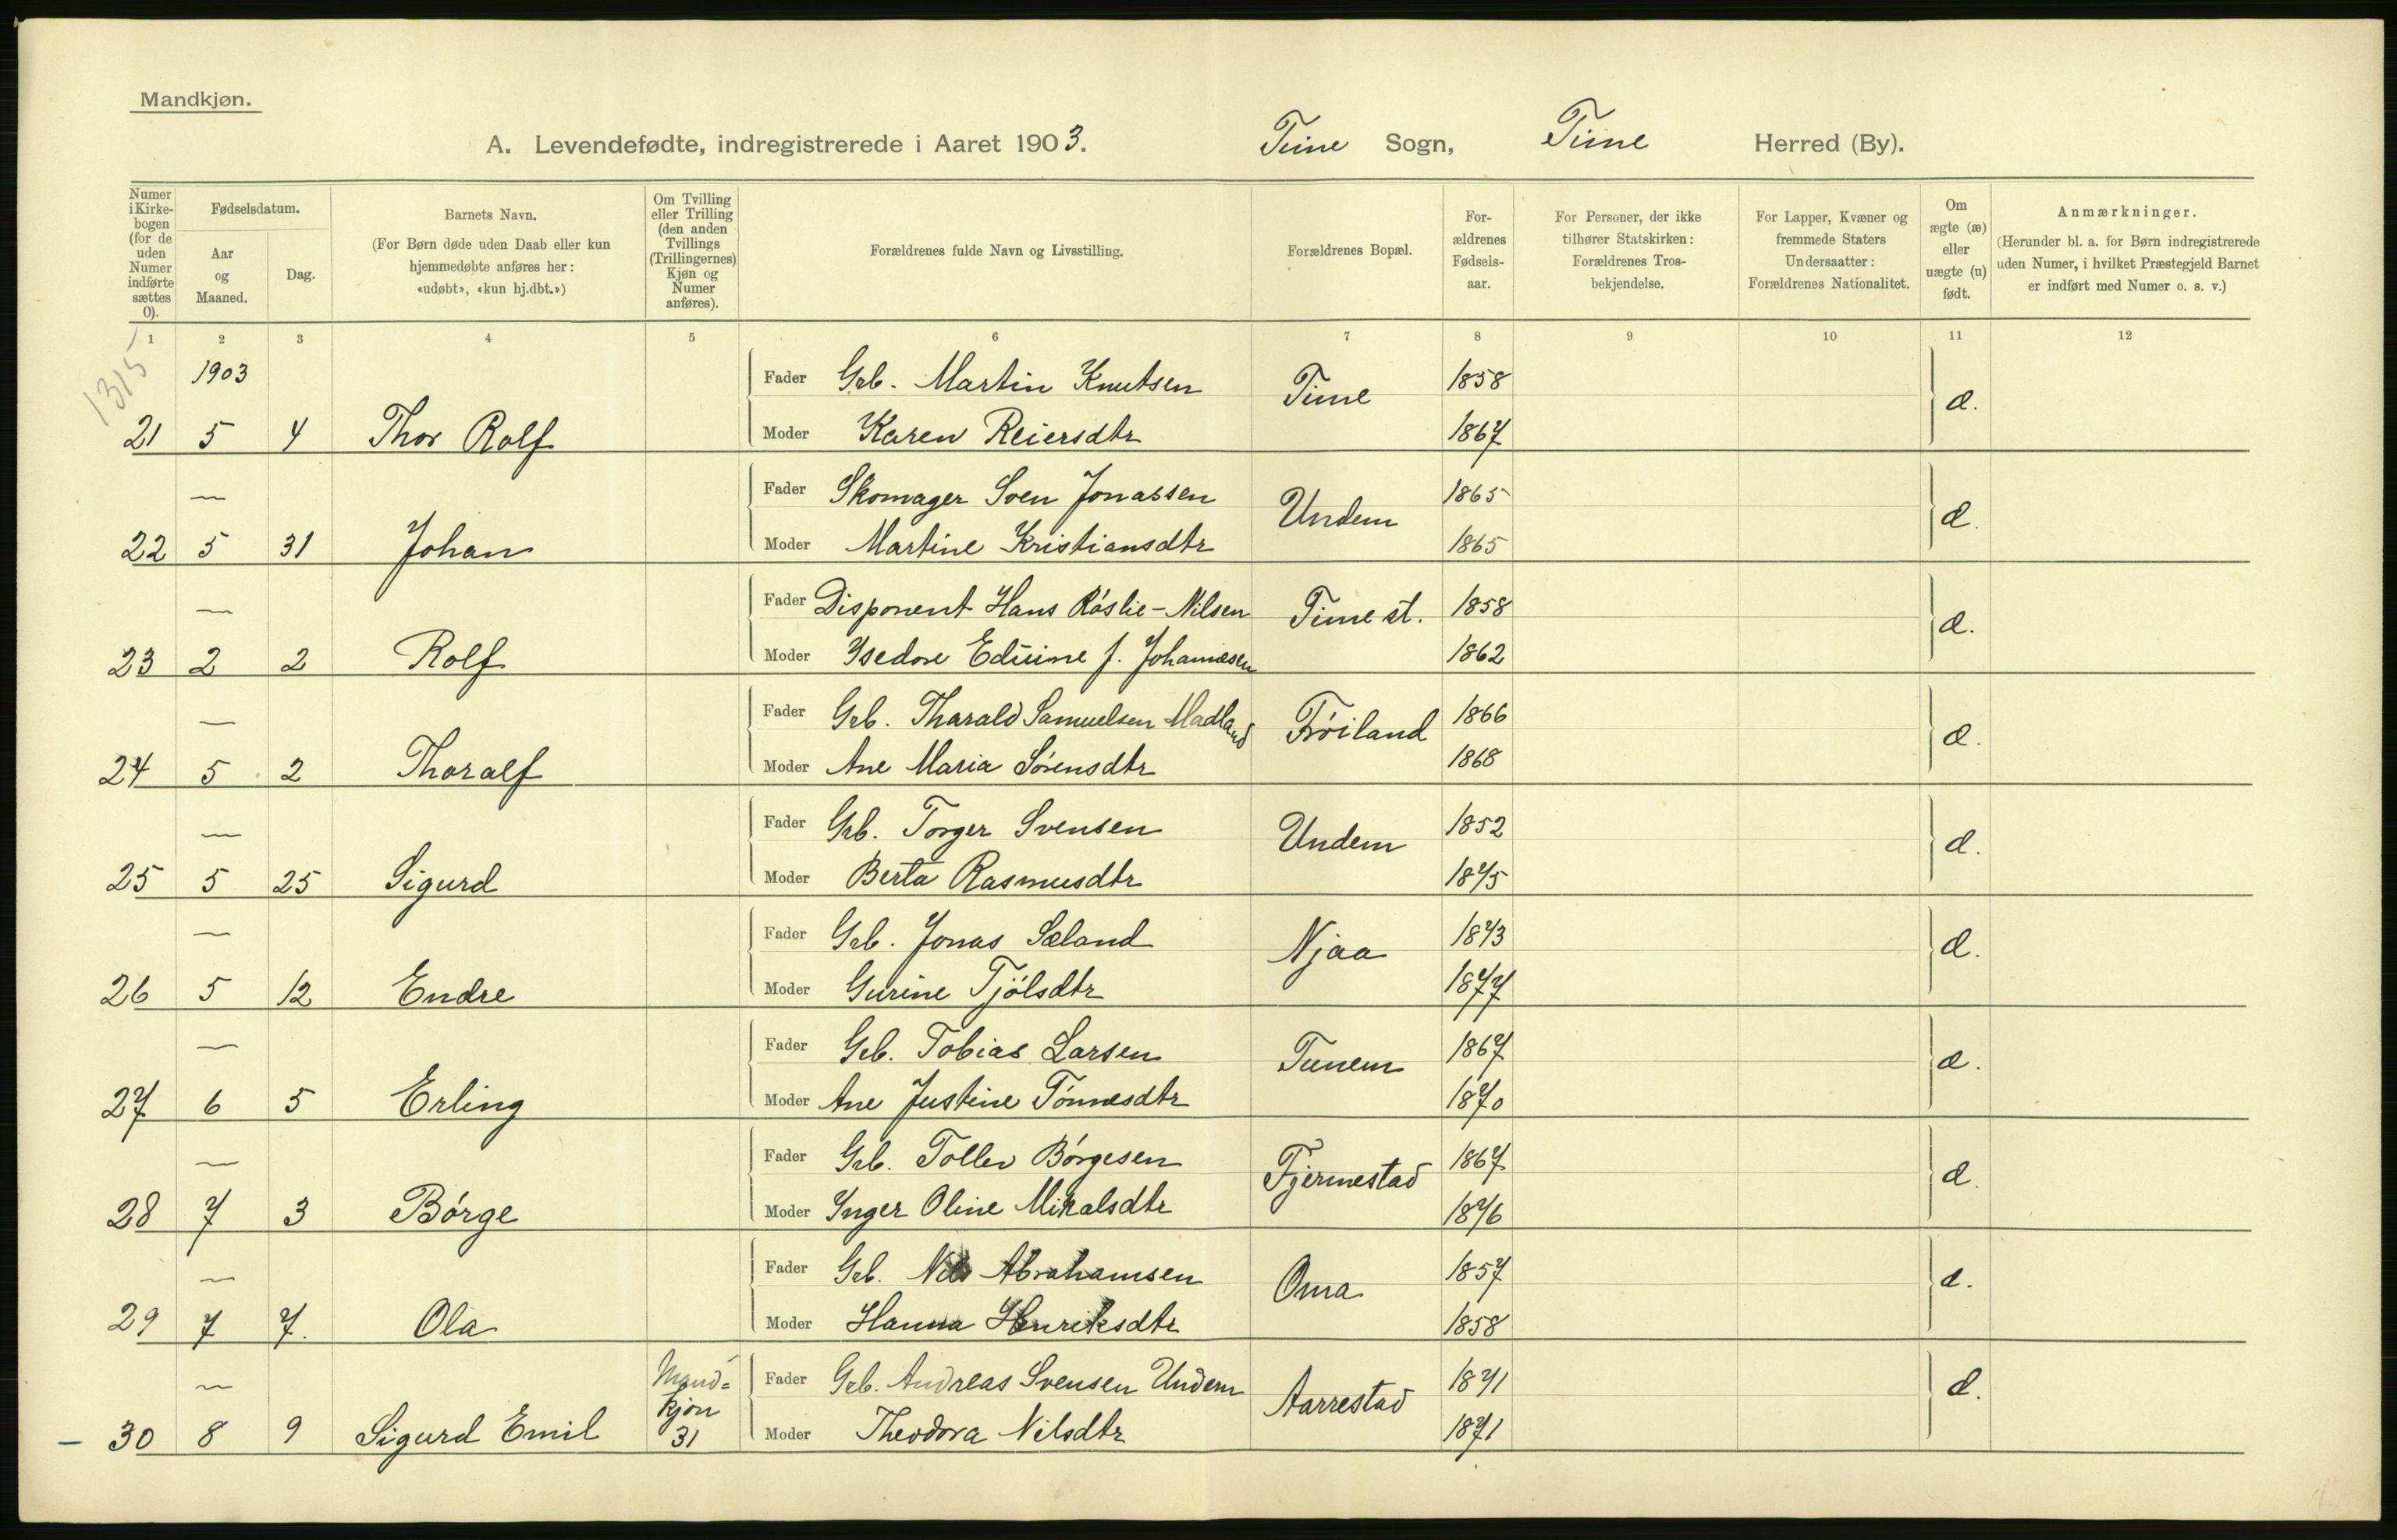 Mandkjøn.
A. Levendefødte, indregistrerede i Aaret 1903. Time Sogn, Time Herred (By).
Numer i Kirkebogen (for de uden Numer indførte sættes 0).
Fødselsdatum.
Aar og Maaned.
Dag.
Barnets Navn.
(For Børn døde uden Daab eller kun hjemmedøbte anføres her: «udøbt», «kun hj.dbt.»)
Om Tvilling eller Trilling (den anden Tvillings (Trillingernes) Kjøn og Numer anføres).
Forældrenes fulde Navn og Livsstilling.
Forældrenes Bopæl.
For-ældrenes Fødsels-aar.
For Personer, der ikke tilhører Statskirken: Forældrenes Tros-bekjendelse.
For Lapper, Kvæner og fremmede Staters Undersaatter: Forældrenes Nationalitet.
Om ægte (æ) eller uægte (u) født.
Anmærkninger.
(Herunder bl. a. for Børn indregistrerede uden Numer, i hvilket Præstegjeld Barnet er indført med Numer o. s. v.)
1 2 3 4 5 6 7 8 9 10 11 12
1315
1903 Fader Grb. Martin Knutsen Time 1858 æ.
21 5 4 Thor Rolf Moder Karen Reiersdtr 1867
— Fader Skomager Sven Jonassen Undem 1865 æ.
22 5 31 Johan Moder Martine Kristiansdtr 1865
— Fader Disponent Hans Røslie-Nilsen Time st. 1858 æ.
23 2 2 Rolf Moder Ysedore Eduine f. Johannesen 1862
— Fader Grb. Tharald Samuelsen Madland Frøiland 1866 æ.
24 5 2 Thoralf Moder Ane Maria Sørensdtr 1868
— Fader Grb. Torger Svensen Undem 1852 æ.
25 5 25 Sigurd Moder Berta Rasmusdtr 1875
— Fader Grb. Jonas Sæland Njaa 1873 æ.
26 5 12 Endre Moder Gurine Tjølsdtr 1877
— Fader Grb. Tobias Larsen Tunem 1867 æ.
27 6 5 Erling Moder Ane Justine Tønnesdtr 1870
— Fader Grb. Tollev Børgesen Fjermestad 1867 æ.
28 7 3 Børge Moder Inger Oline Mikalsdtr 1876
— Fader Grb. Nils Abrahamsen Oma 1857 æ.
29 7 7. Ola Moder Hanna Henriksdtr 1858
— Mand=kjøn 31 Fader Grb. Andreas Svensen Undem Aarrestad 1871 æ.
– 30 8 9 Sigurd Emil Moder Theodora Nilsdtr 1871